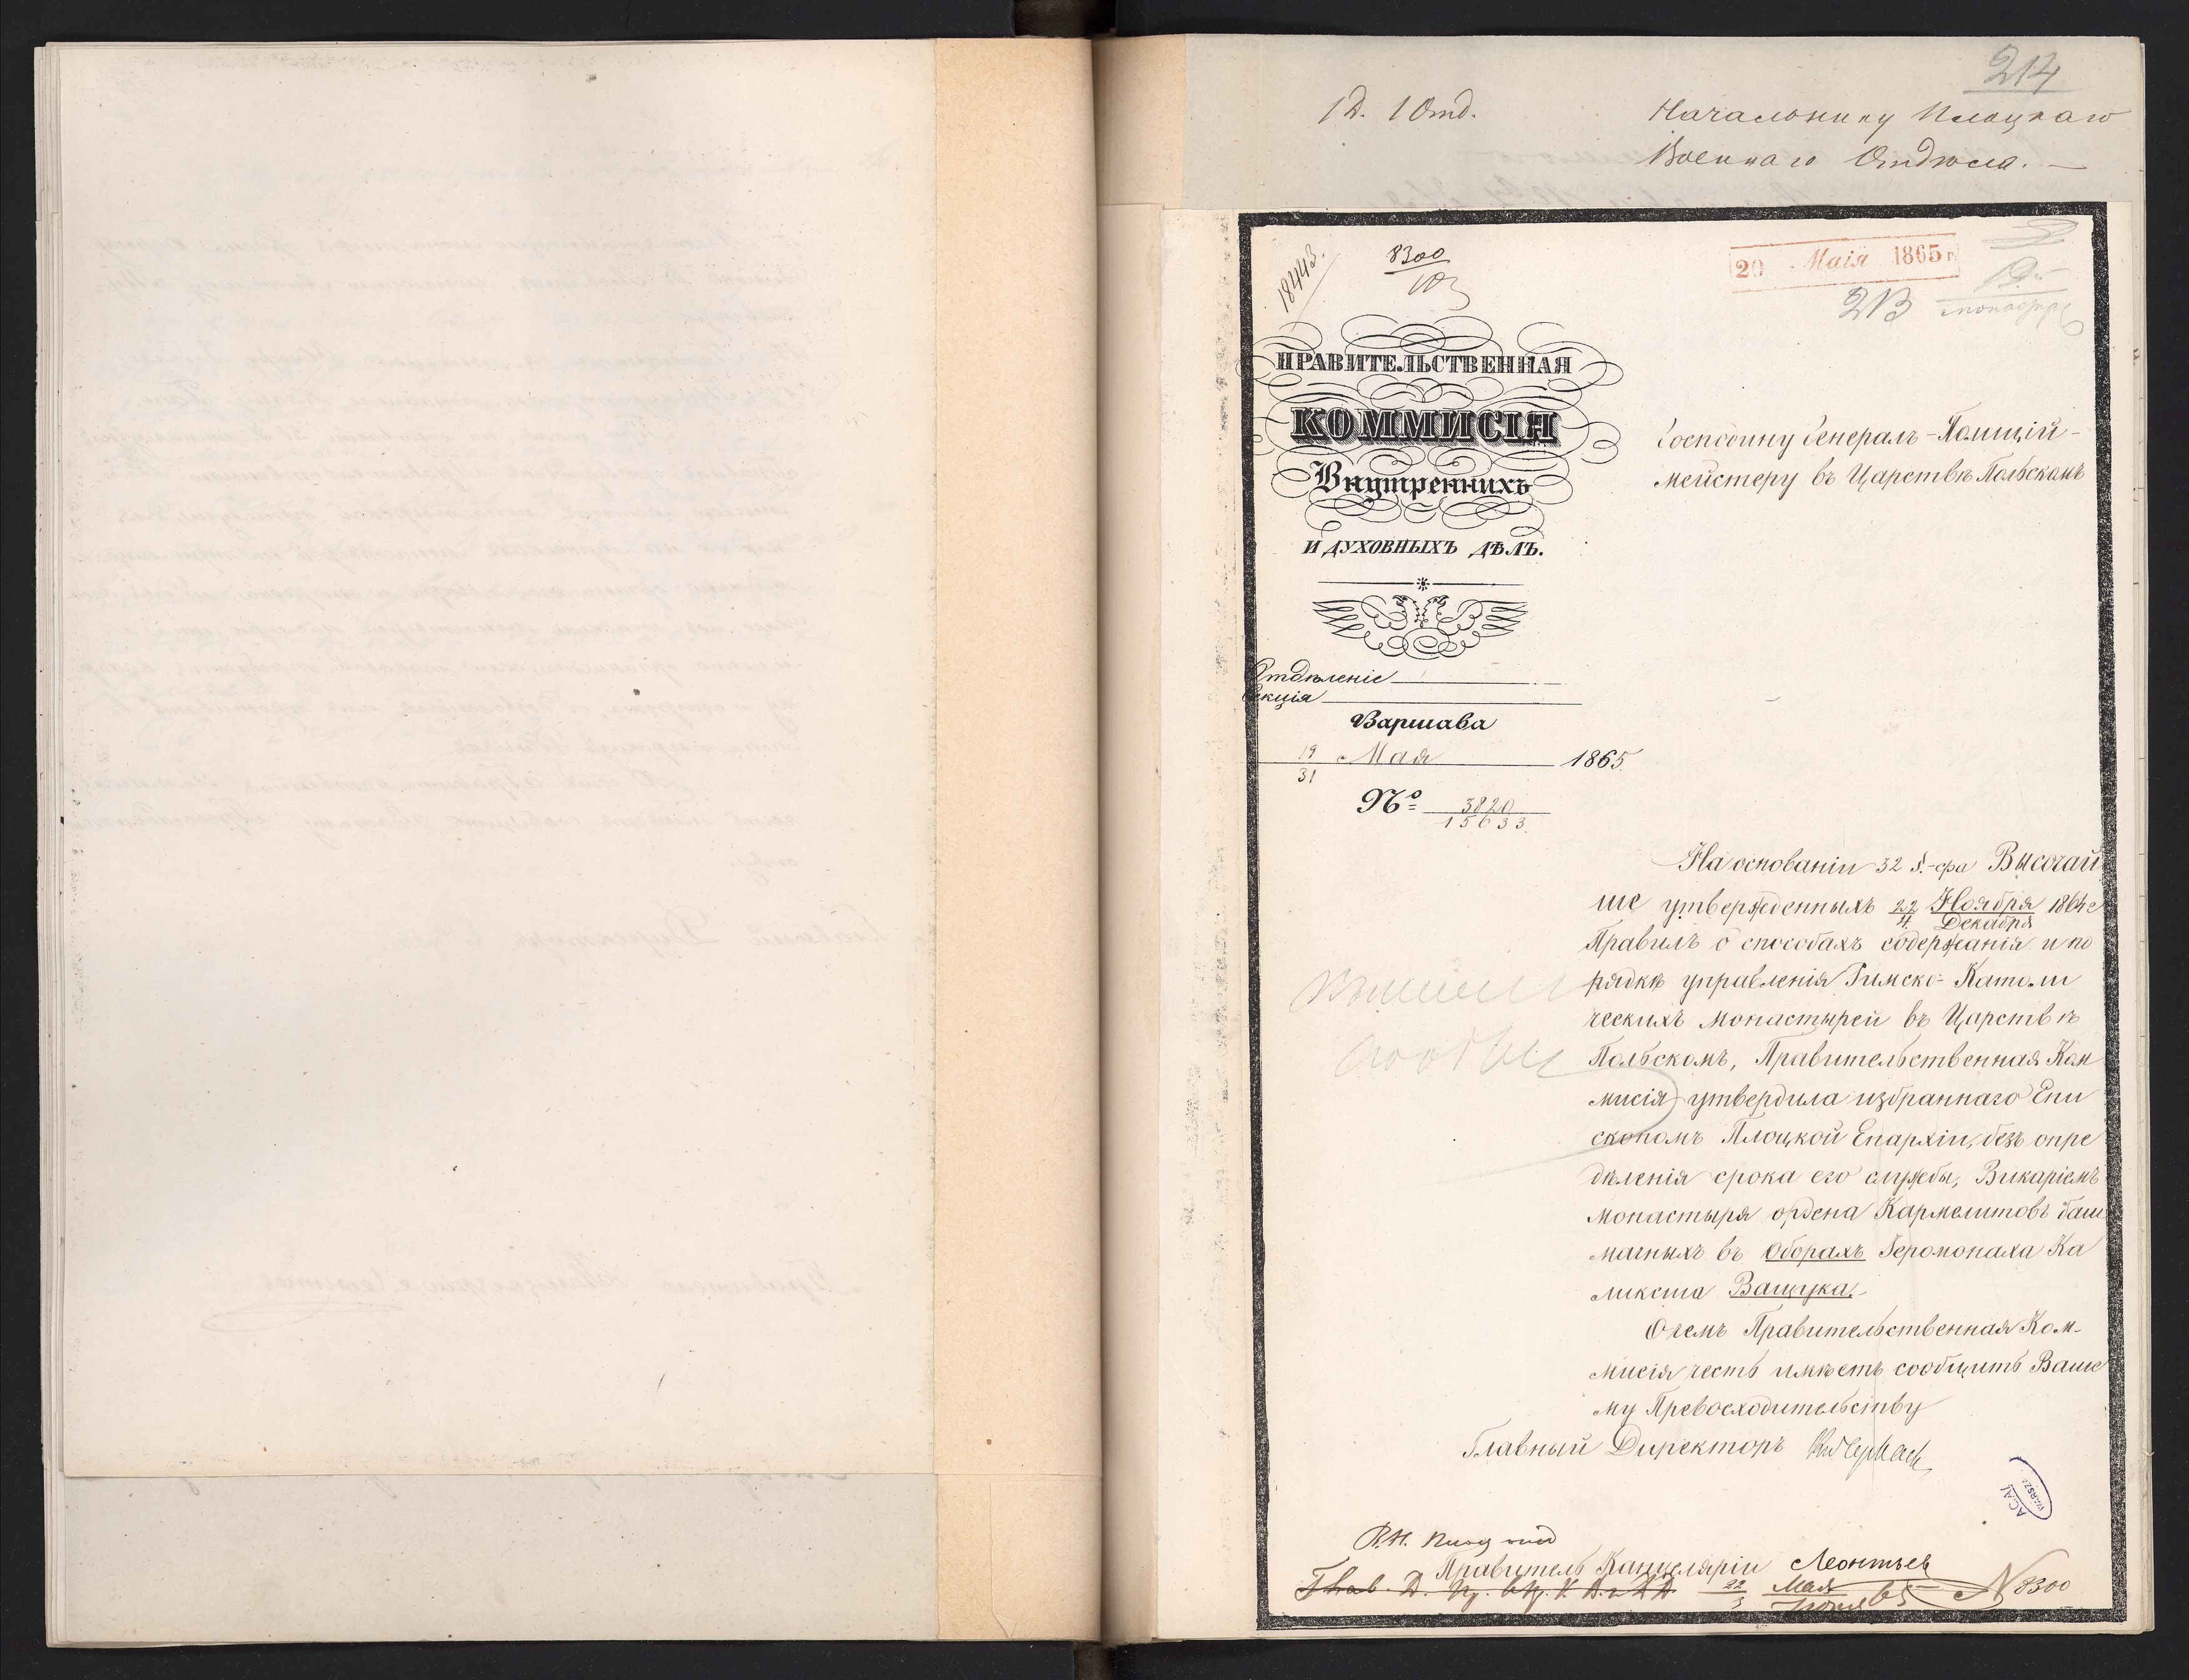 214
1 Д. 1 Отд.
Начальнику Плоцкаго
Военнаго Отдѣла. —
18443.
8300
20 Маія 1865 г.
213
ПРАВИТЕЛЬСТВЕННАЯ
КОММИСІЯ
Внутреннихъ
И ДУХОВНЫХЪ ДѢЛЪ.
Господину Генералъ-Полицій-
мейстеру въ Царствѣ Польскомъ
Отдѣленіе
Секція
Варшава
19/31 Мая 1865
№ 3820/15633
На основаніи 32 §-фа Высочай
ше утвержденныхъ 22 Ноября / 4 Декабря 1864 г
Правилъ о способахъ содержанія и по
рядкѣ управленія Римско-Католи
ческихъ монастырей въ Царствѣ
Польскомъ, Правительственная Ком
мисія утвердила избраннаго Епи
скопомъ Плоцкой Епархіи, безъ опре
дѣленія срока его службы, Викаріемъ
монастыря ордена Кармелитовъ баш
мачныхъ въ Оборахъ Іеромонаха Ка
ликста Ващука.
О чемъ Правительственная Ком-
мисія честь имѣетъ сообщить Ваше
му Превосходительству
Главный Директоръ
ACAI
WARSZ
Правитель Канцеляріи Леонтьев
22/3 Мая/Іюня 65 N 8300